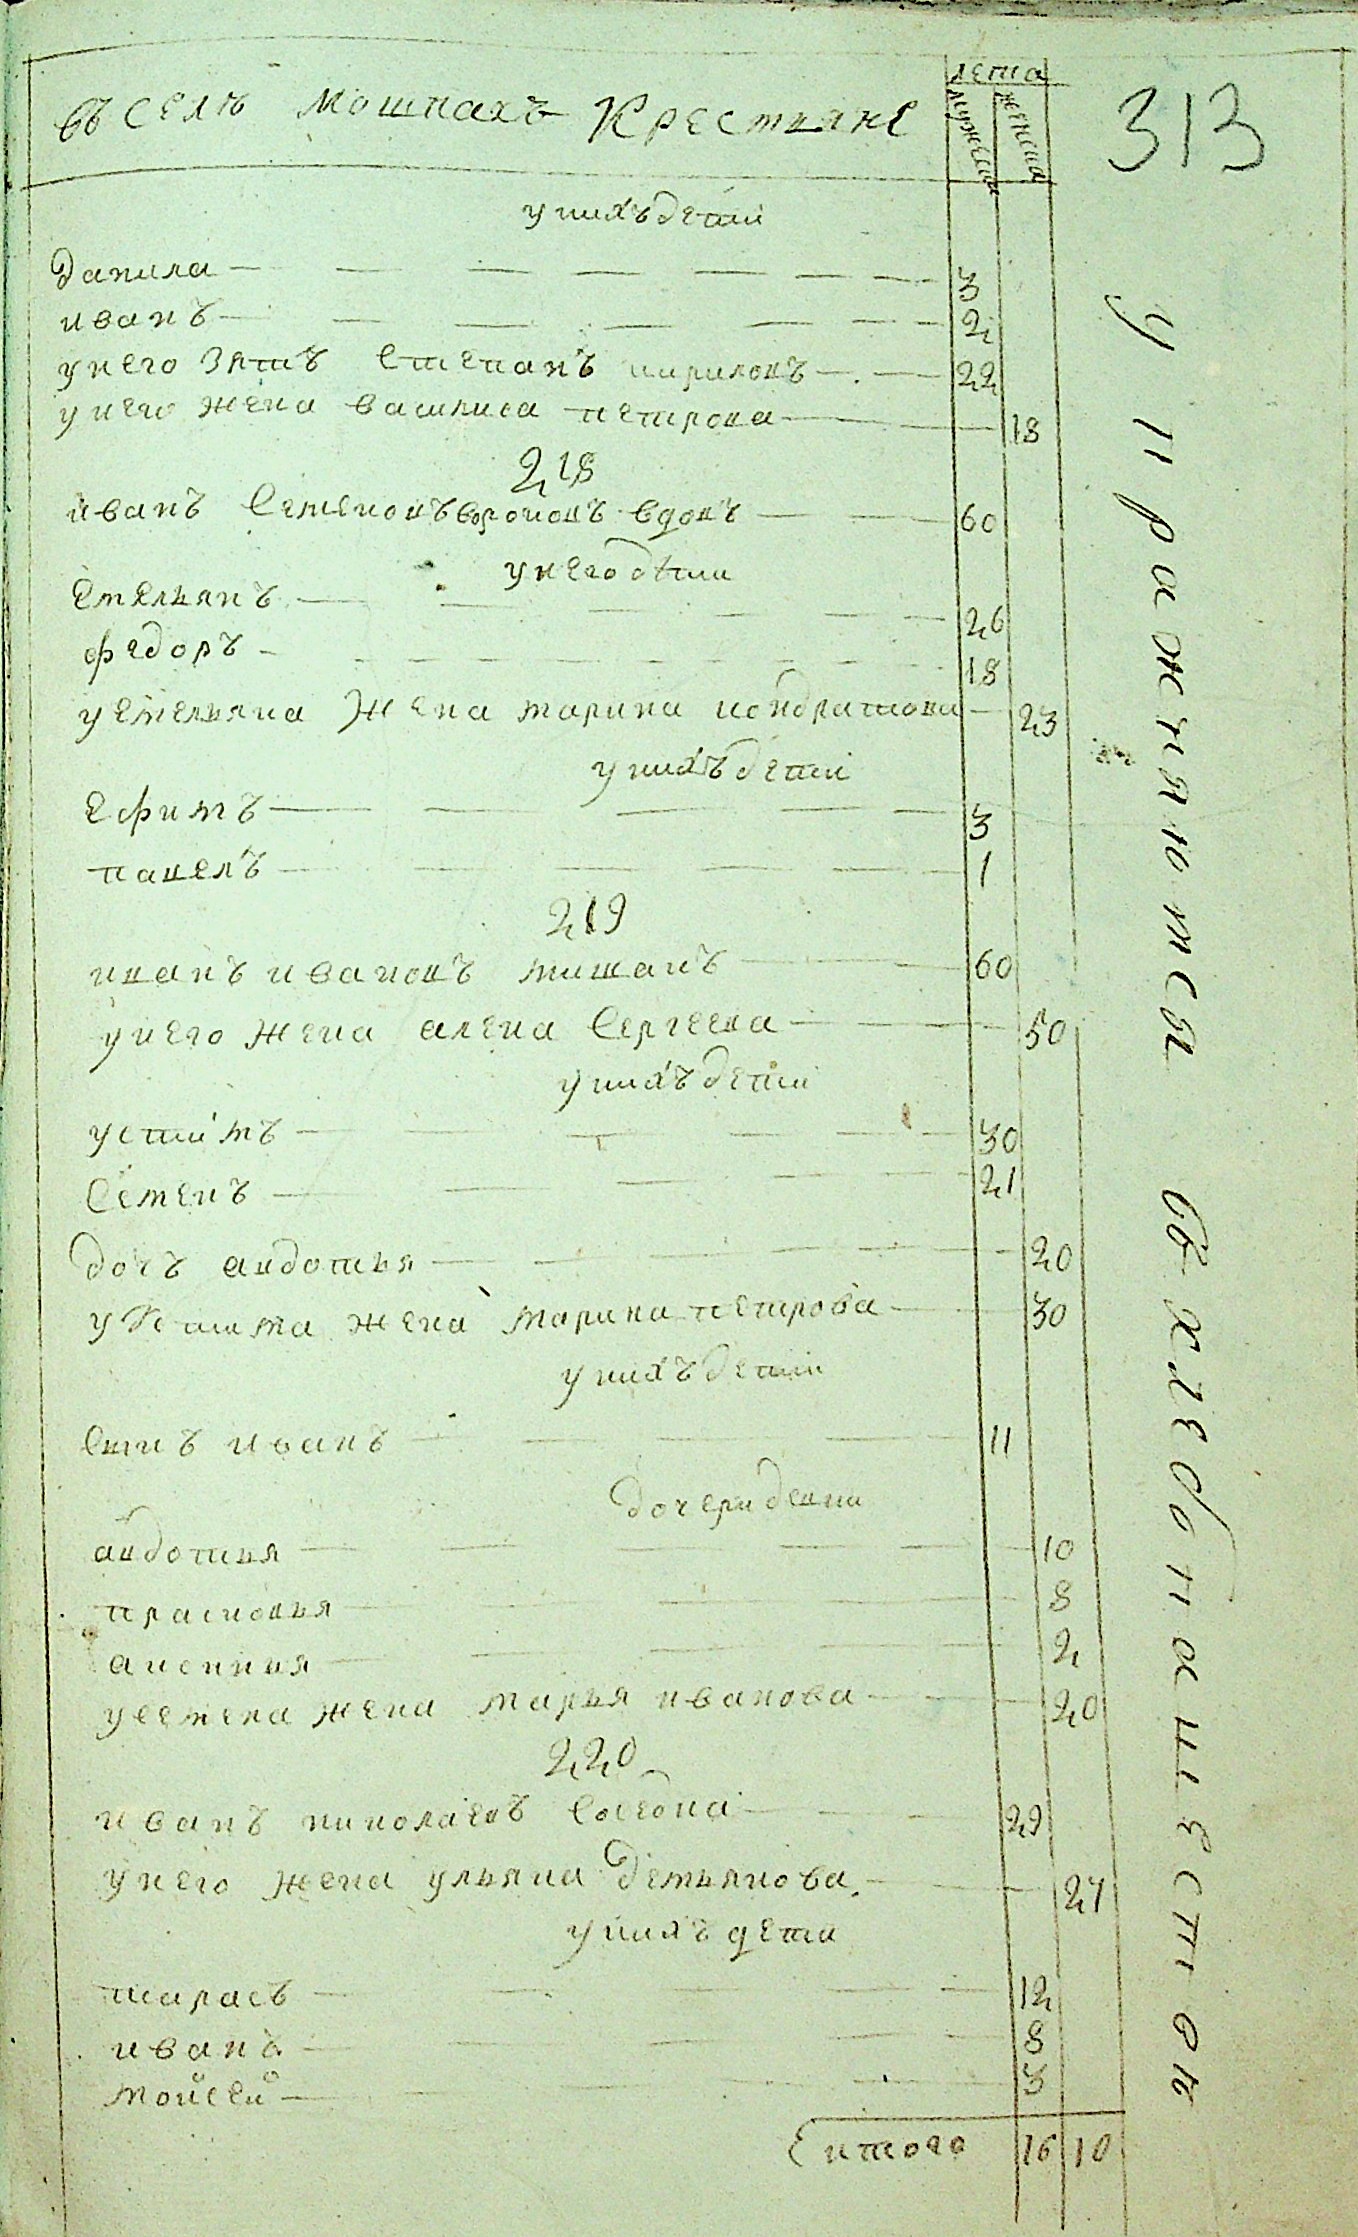 въ селѣ Мошнахъ Крестьяне
лета
мужеска
женска
313
у нихъ дети
данила 3
иванъ 2
у него зять Степанъ кириловъ 22
у него жена василиса петрова 18
218
иванъ Семеновъ вороновъ вдовъ 60
у него дѣти
Емельянъ 26
федоръ 18
у емельяна жена марина кондратова 23
у нихъ дети
Ефимъ 3
павелъ 1
219
иванъ ивановъ мишакъ 60
у него жена алена Сергеева 50
у нихъ дети
устимъ 30
Семенъ 21
дочъ авдотья 20
у Устима жена марина петрова 30
у нихъ дети
Сынъ иванъ 11
дочери девки
авдотья 10
прасковья 8
аксинья 2
у семена жена марья иванова 20
220
иванъ николаевъ 29
у него жена ульяна демьянова 27
у нихъ дети
тарасъ 12
иванъ 8
мойсей 3
итого 16 10
упражняются въ хлебопашестве